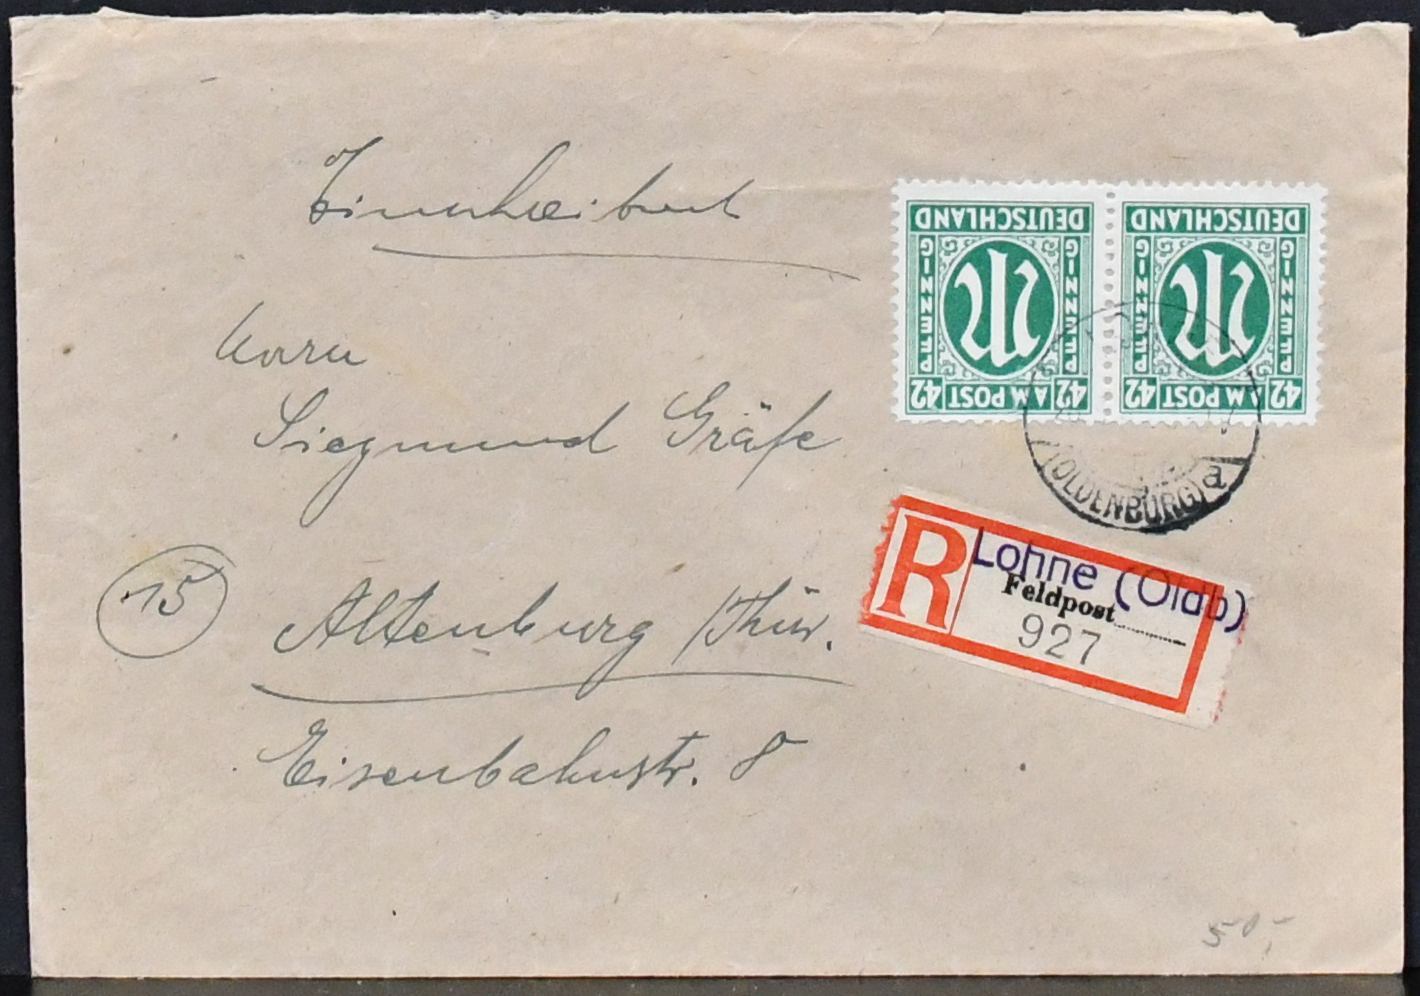 Einschreiben!
Herrn
Siegmund Gräfe
15
Altenburg /Thür.
Eisenbahnstr. 8
DEUTSCHLAND
PFENNIG
PFENNIG
42 AM POST 42
DEUTSCHLAND
PFENNIG
PFENNIG
42 AM POST 42
(OLDENBURG) a
R
Lohne (Oldb)
Feldpost
927
50,-